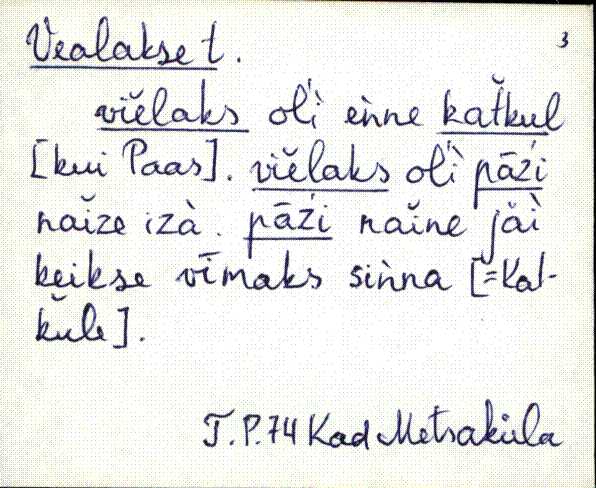 3
Vealakse t.
viĕlaks oĺì eǹne kat̆kul
[kui Paas]. viĕlaks oĺì pāźi
naĭze izà. pāźi naĭne jäì
keikse vīmaks siǹna [=Kat-
küla].
T.P.74 Kad Metsaküla